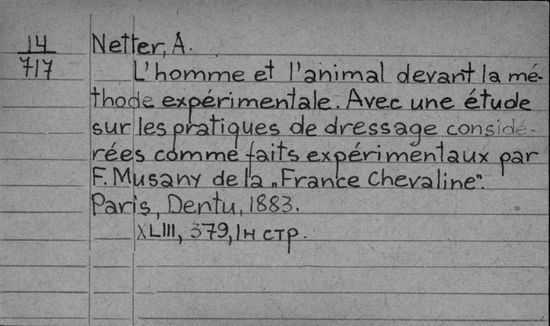 14
717
Netter, A.
L'homme et l'animal devant la mé-
thode expérimentale. Avec une étude
sur les pratiques de dressage considé-
rées comme faits expérimentaux par
F. Musany de la „France Chevaline“.
Paris, Dentu, 1883.
XLIII, 379, 1н стр.